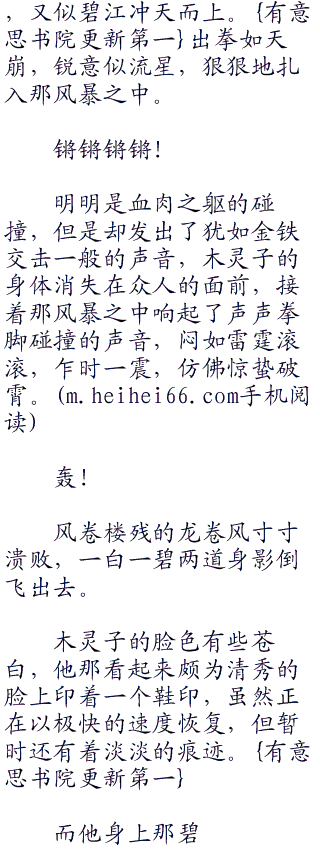 ，又似碧江冲天而上。{有意
思书院更新第一}出拳如天
崩，锐意似流星，狠狠地扎
入那风暴之中。
锵锵锵锵！
明明是血肉之躯的碰
撞，但是却发出了犹如金铁
交击一般的声音，木灵子的
身体消失在众人的面前，接
着那风暴之中响起了声声拳
脚碰撞的声音，闷如雷霆滚
滚，乍时一震，仿佛惊蛰破
霄。(m.heihei66.com手机阅
读)
轰！
风卷楼残的龙卷风寸寸
溃败，一白一碧两道身影倒
飞出去。
木灵子的脸色有些苍
白，他那看起来颇为清秀的
脸上印着一个鞋印，虽然正
在以极快的速度恢复，但暂
时还有着淡淡的痕迹。{有意
思书院更新第一}
而他身上那碧